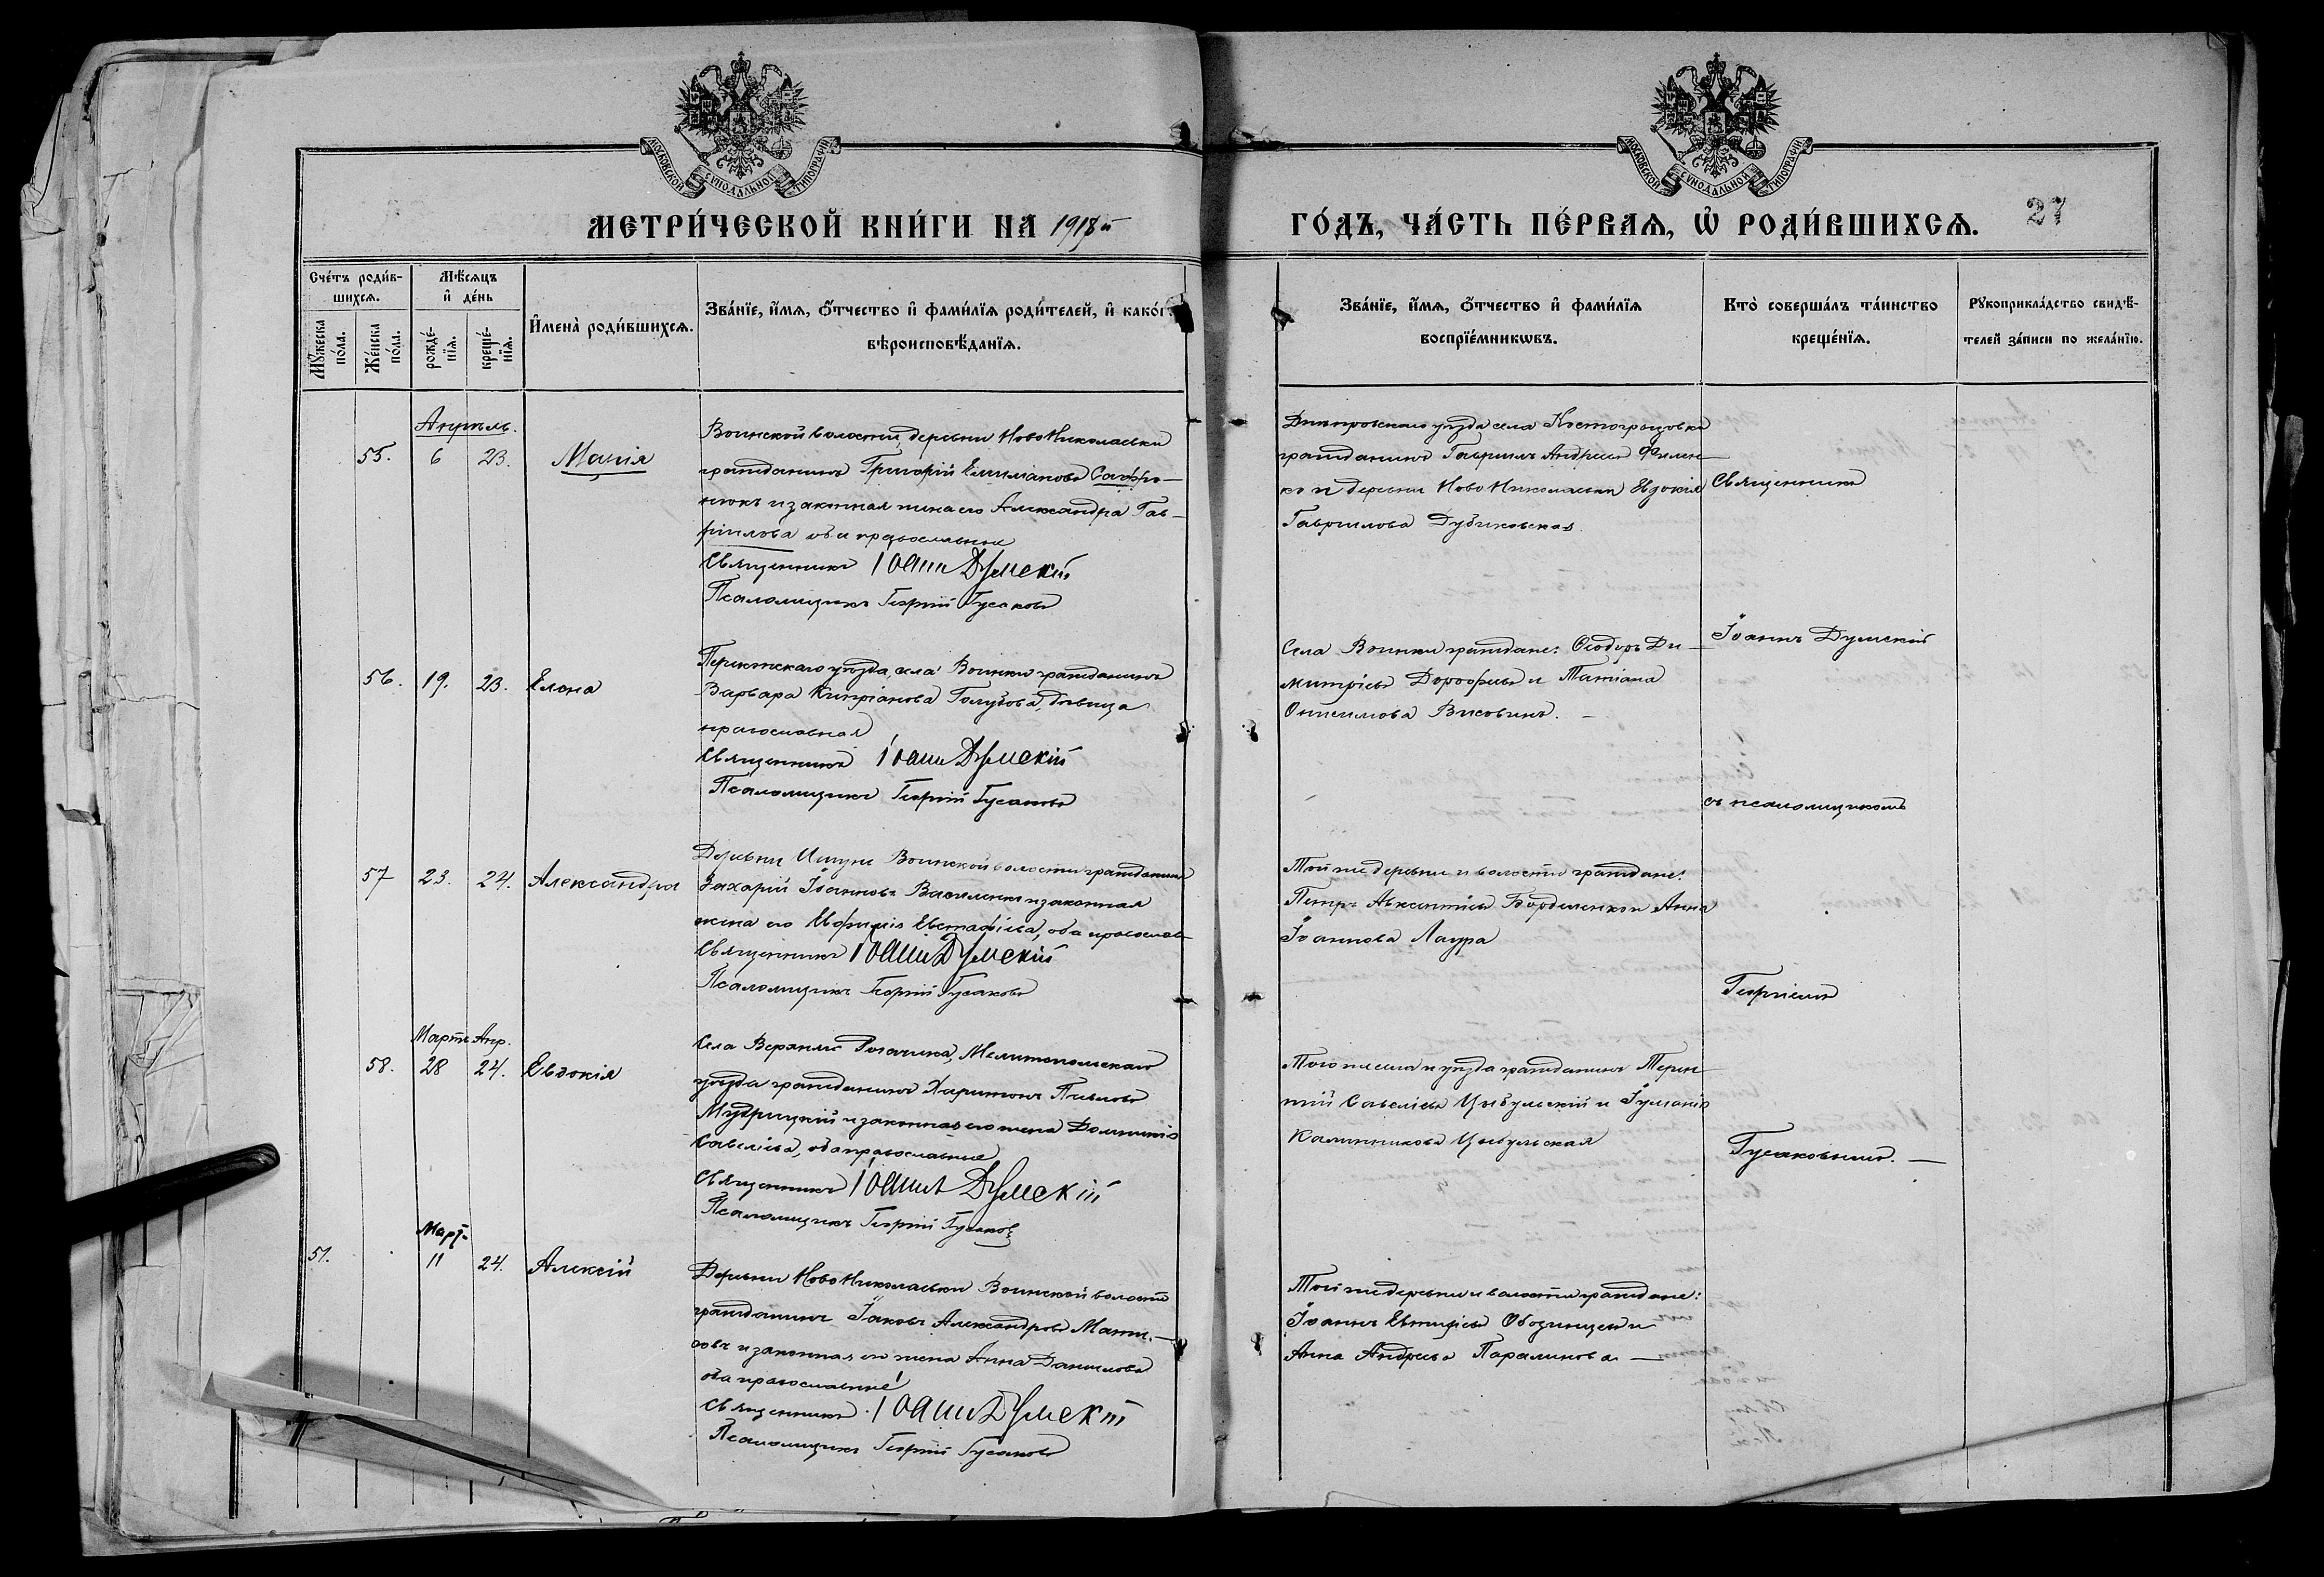 МОСКОВСКОЙ СѴНОДАЛЬНОЙ ТИПОГРАФІИ
МОСКОВСКОЙ СѴНОДАЛЬНОЙ ТИПОГРАФІИ
МЕТРИ́ЧЕСКОЙ КНИ́ГИ НА 1918й
ГО́ДЪ, ЧА́СТЬ ПЕ́РВАѦ, Ѡ҆ РОДИ́ВШИХСѦ. 27
Сче́тъ роди́в-
шихсѧ.
Мꙋ́жеска
по́ла.
Же́нска
по́ла.
Мѣ́сѧцъ
и҆ де́нь
рожде́-
нїѧ.
креще́-
нїѧ.
И҆мена̀ роди́вшихсѧ.
Зва́нїе, и҆́мѧ, ѻ҆́тчество и҆ фами́лїѧ роди́телей, и҆ како́г
вѣроисповѣ́данїѧ.
Зва́нїе, и҆́мѧ, ѻ҆́тчество и҆ фами́лїѧ
воспрїе́мникѡвъ.
Кто̀ соверша́лъ та́инство
креще́нїѧ.
Рꙋкоприкла́дство свидѣ́-
телей за́писи по жела́нїю.
Апрѣль.
55. 6 23. Марія
Воинской волости, деревни НовоНиколаевки
гражданинъ Григорій Сафро-
нюкъ и законная жена его Александра Гав-
ріилова оба православные
Священникъ Іоаннъ Думскій
Псаломщикъ Георгій Гусаковъ
Днѣпровскаго уѣзда села
гражданинъ Гавріилъ Андреевъ Филен-
ко и деревни НовоНиколаевки Евдокія
Гавріилова Дубиковская.
Священникъ
56. 19. 23. Елена
Перекопскаго уѣзда, села Воинки гражданинъ
Варвара Кипріанова Голубова, дѣвица
православная
Священникъ Іоаннъ Думскій
Псаломщикъ Георгій Гусаковъ
Села Воинки граждане: Ѳеодоръ Ди-
митріевъ Дорофеевъ и Татіана
Онисимова
Іоаннъ Думскій
съ псаломщикомъ
57 23. 24. Александра
Деревни Ишуни Воинской волости гражданинъ
Захарій Іоанновъ Василенко и законная
жена его Евфимія Евстафіева, оба православ
Священникъ Іоаннъ Думскій
Псаломщикъ Георгій Гусаковъ
Той же деревни и волости граждане:
Петръ Авксентіевъ и Анна
Іоаннова Лаура
Георгіемъ
Мартъ Апр.
58. 28 24. Евдокія
Села Верхняго Рогачика, Мелитопольскаго
уѣзда гражданинъ Харитонъ Павловъ
Мудрицкій и законная его жена Домникія
Савеліева, оба православные
Священникъ Іоаннъ Думскій
Псаломщикъ Георгій Гусаковъ
Того же села и уѣзда гражданинъ Терен-
тій Савеліевъ Цыбульскій и Іуліанія
Калинникова Цыбульская
Гусаковымъ. —
Март.
51. 11 24. Алексій
Деревни НовоНиколаевки Воинской волости
гражданинъ Іаковъ Александровъ
и законная его жена Анна Даниилова
оба православные
Священникъ Іоаннъ Думскій
Псаломщикъ Георгій Гусаковъ
Той же деревни и волости граждане:
Іоаннъ и
Анна Андреева Парамонова —